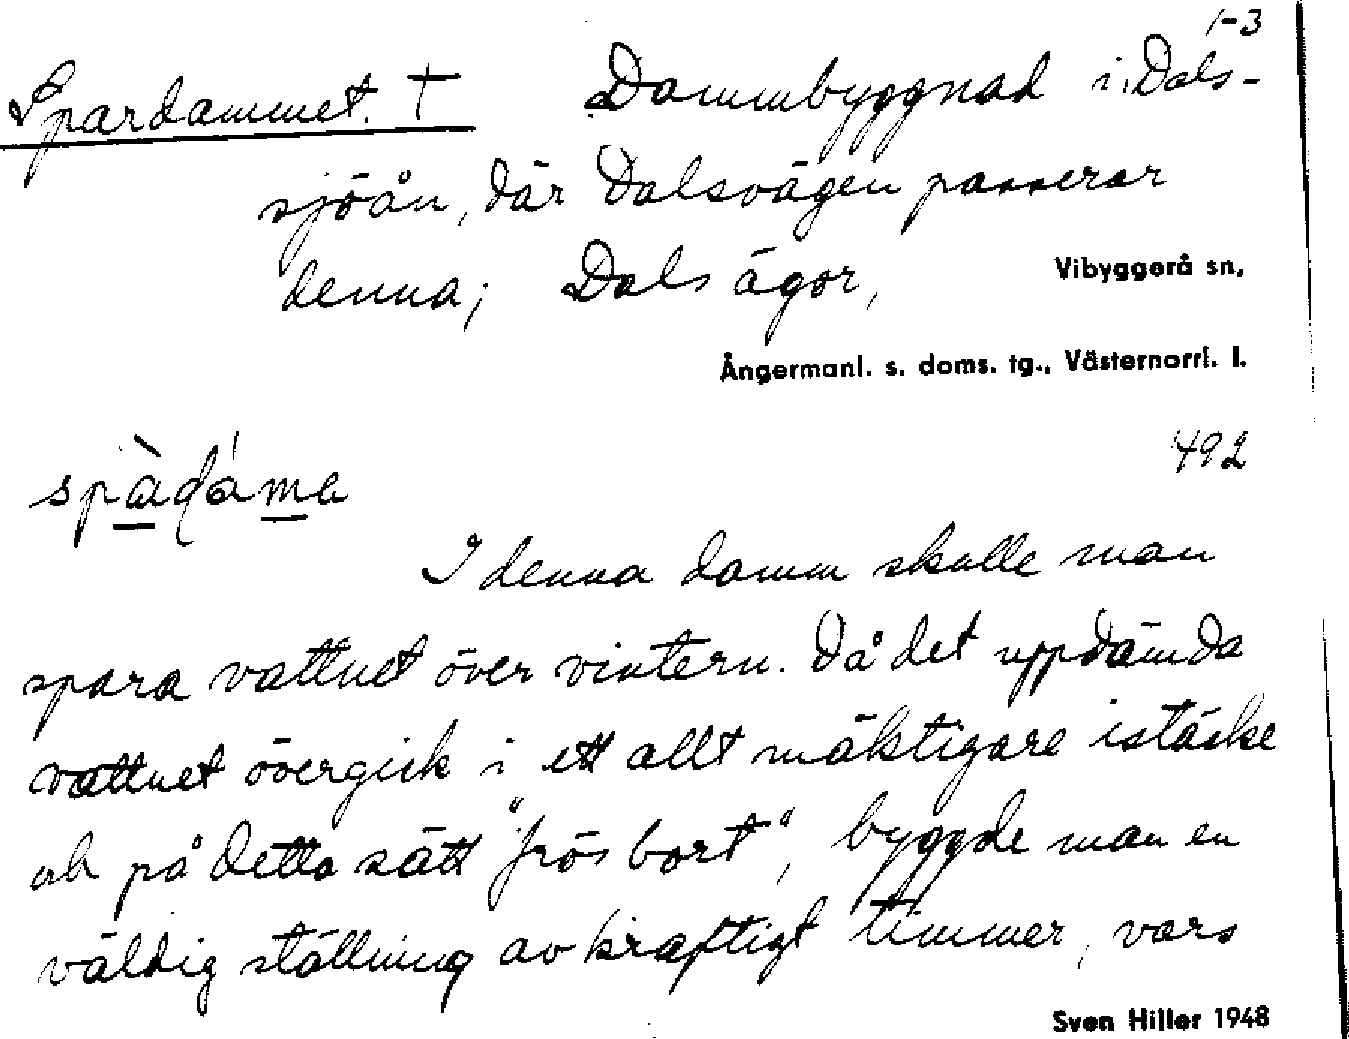 1-3
Spardammet. † Dammbyggnad i Dals-
sjöån, där Dalsvägen passerar
denna; Dals ägor,
Vibyggerå sn,
Ångermanl. s. doms. tg., Västernorrl. l.
492
spàdáma
I denna damm skulle man
spara vattnet över vintern. Då det uppdämda
vattnet övergick i ett allt mäktigare istäcke
och på detta sätt "frös bort", byggde man en
väldig ställning av kraftigt timmer, vars
Sven Hiller 1948